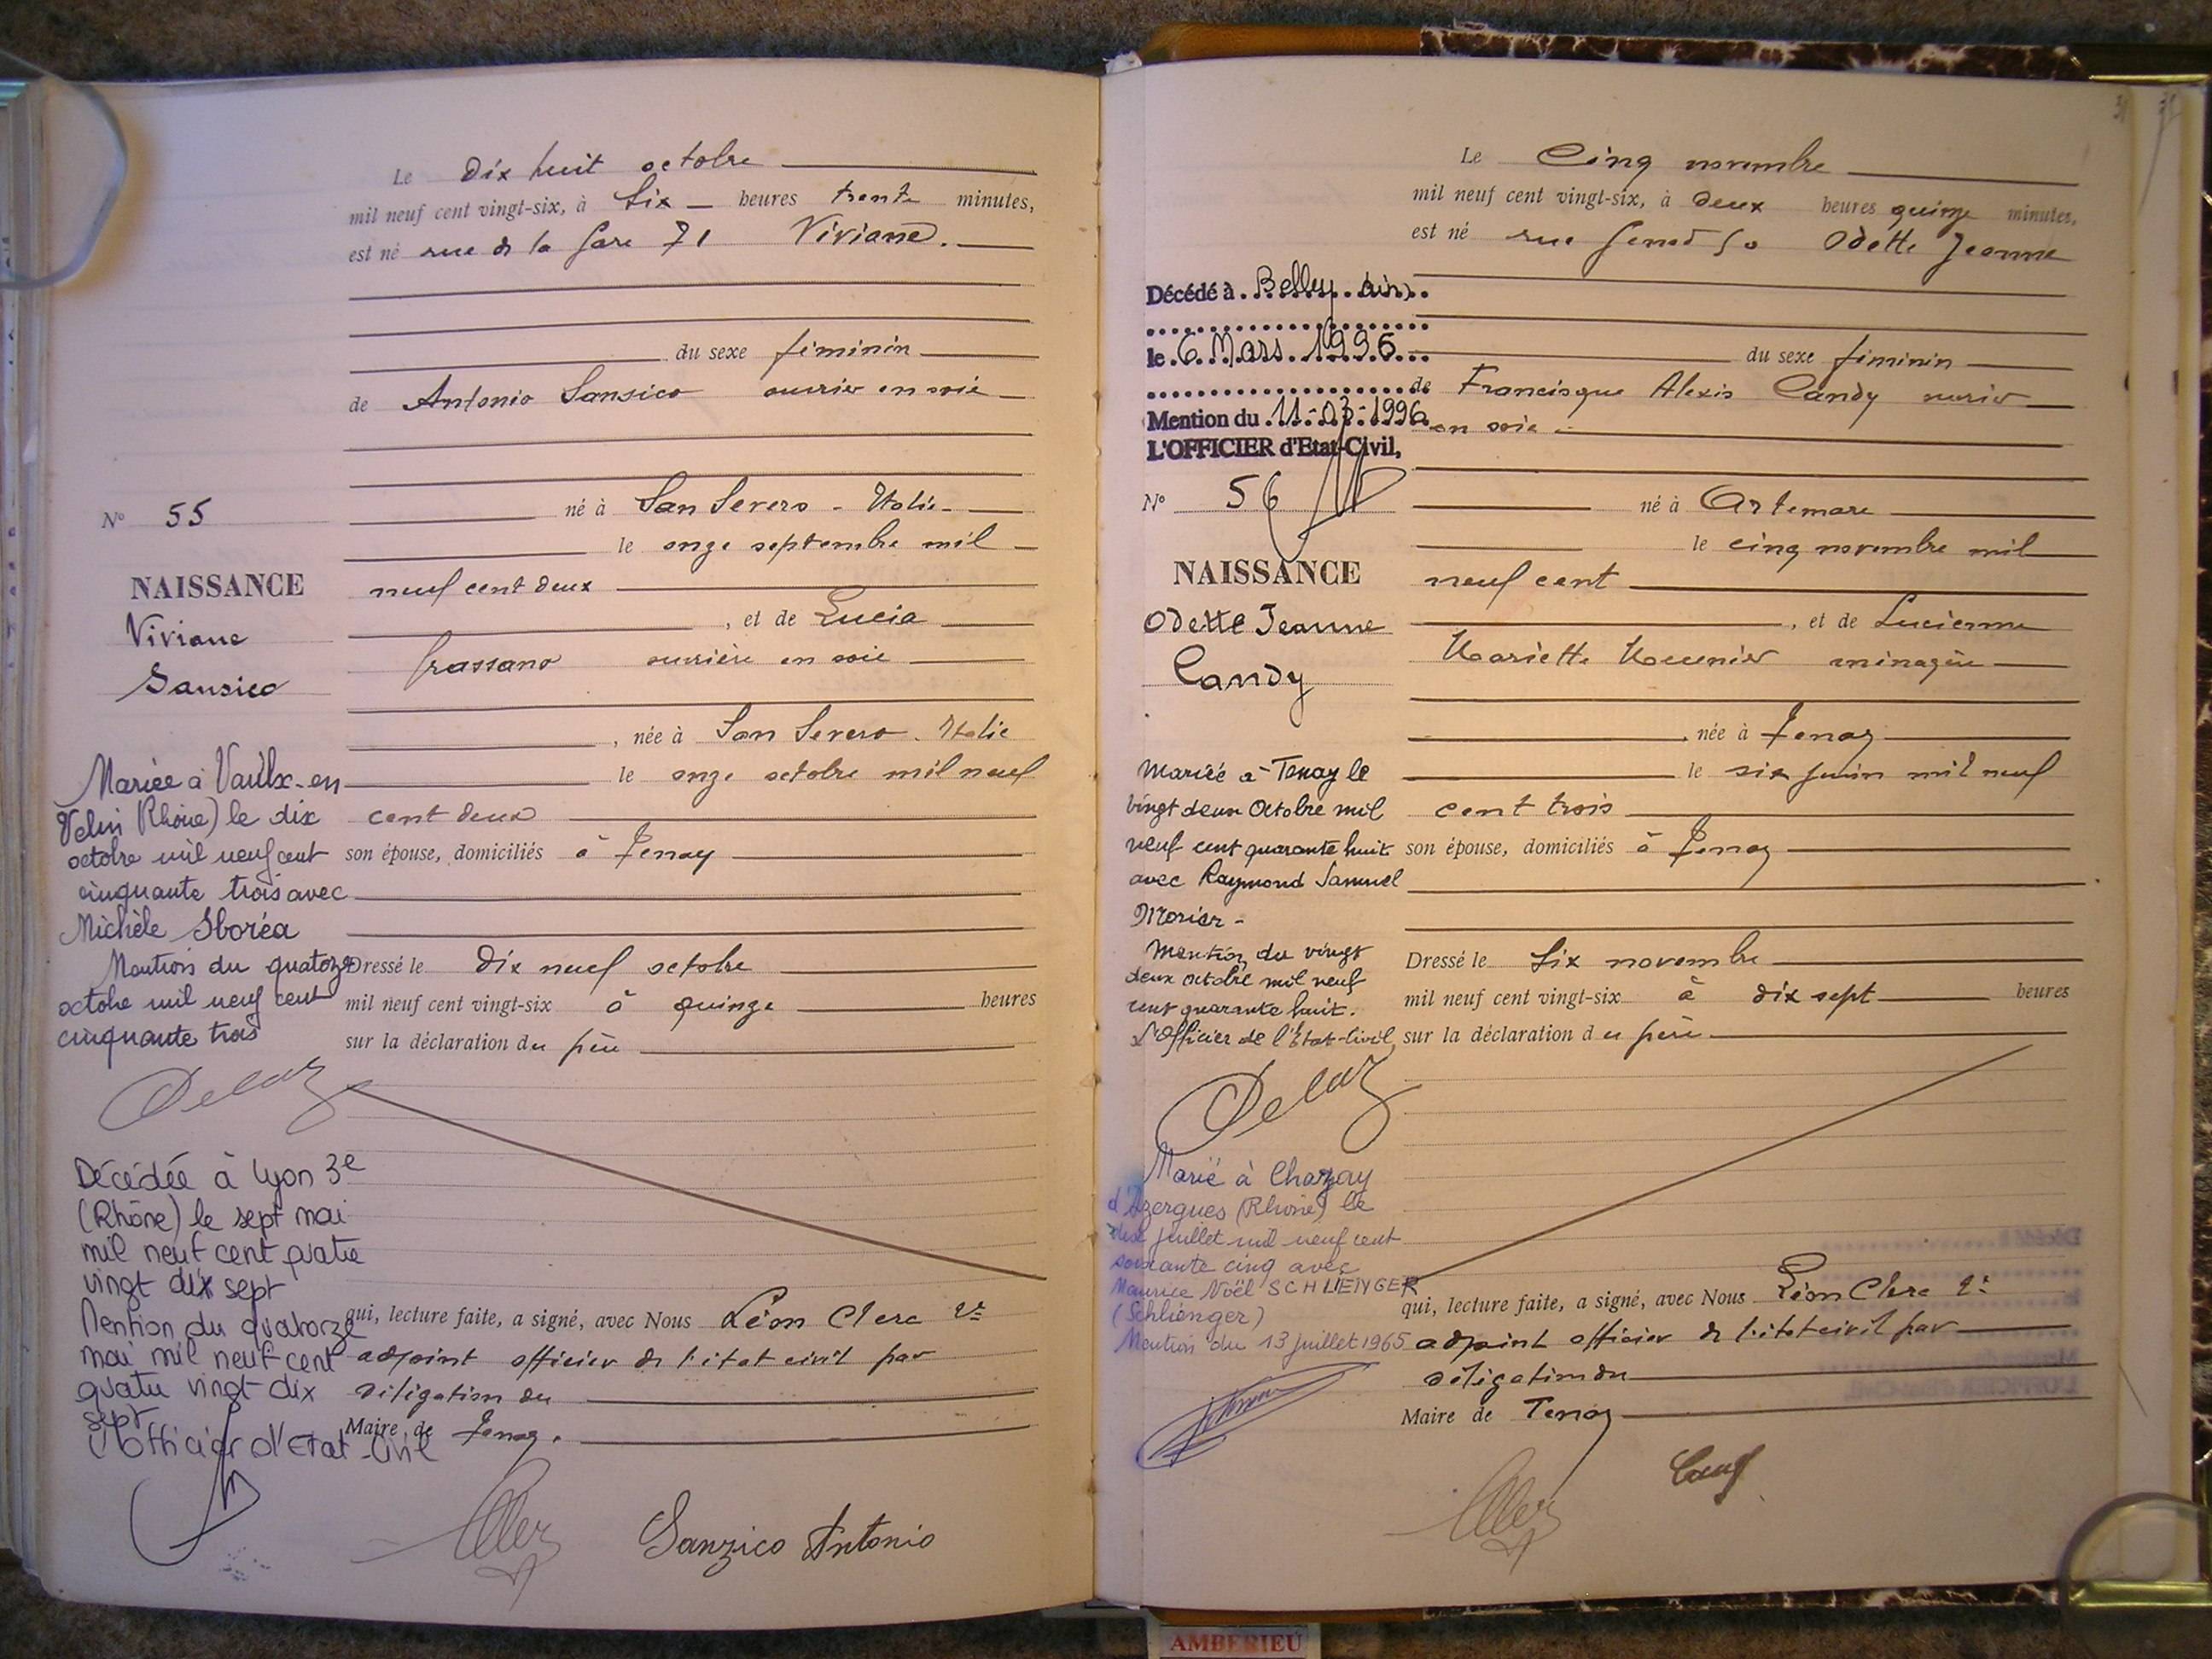 Le Dix huit octobre
mil neuf cent vingt-six, à Six heures trente minutes,
est né rue de la Gare 71 Viviane.
du sexe féminin
de Antonio Sansico ouvrier en soie
né à San Severo - Italie
N° 55
le onze septembre mil
neuf cent deux
NAISSANCE
Viviane
Sansico
, et de Lucia
Grassano ouvrière en soie
, née à San Severo. Italie
le onze octobre mil neuf
cent deux
son épouse, domiciliés à Tenay
Mariée à Vaulx-en
Velin (Rhône) le dix
octobre mil neuf cent
cinquante trois avec
Michèle Sboréa
Mention du quatorze
octobre mil neuf cent
cinquante trois
Dressé le dix neuf octobre
mil neuf cent vingt-six à quinze heures
sur la déclaration du père
Décédée à Lyon 3e
(Rhône) le sept mai
mil neuf cent quatre
vingt dix sept
Mention du quatorze
mai mil neuf cent
quatre vingt dix
sept
L'officier d'Etat-Civil
qui, lecture faite, a signé, avec Nous Léon Clerc 2e
adjoint officier de l'état civil par
délégation du
Maire de Tenay.
Sanzico Antonio
Le Cinq novembre
mil neuf cent vingt-six, à deux heures quinze minutes,
est né rue Odette Jeanne
Décédé à Belley Ain
le 6 Mars 1996
Mention du 11-03-1996
L'OFFICIER d'Etat-Civil,
du sexe féminin
de Francisque Alexis Candy ouvrier
en soie
N° 56
né à Artemare
le cinq novembre mil
neuf cent
NAISSANCE
Odette Jeanne
Candy
, et de Lucienne
Mariette Meunier ménagère
, née à Tenay
le six juin mil neuf
cent trois
son épouse, domiciliés à Tenay
Mariée à Tenay le
vingt deux Octobre mil
neuf cent quarante huit
avec Raymond Samuel
Morier -
Mention du vingt
deux octobre mil neuf
cent quarante huit.
L'Officier de l'Etat-Civil,
Dressé le Six novembre
mil neuf cent vingt-six à dix sept heures
sur la déclaration du père
Marié à Chazay
d'Azergues (Rhône) le
juillet mil neuf cent
soixante cinq avec
Maurice Noël SCHLIENGER
(Schlienger)
Mention du 13 juillet 1965
qui, lecture faite, a signé, avec Nous Léon Clerc 2e
adjoint officier de l'état civil par
délégation du
Maire de Tenay
AMBERIEU